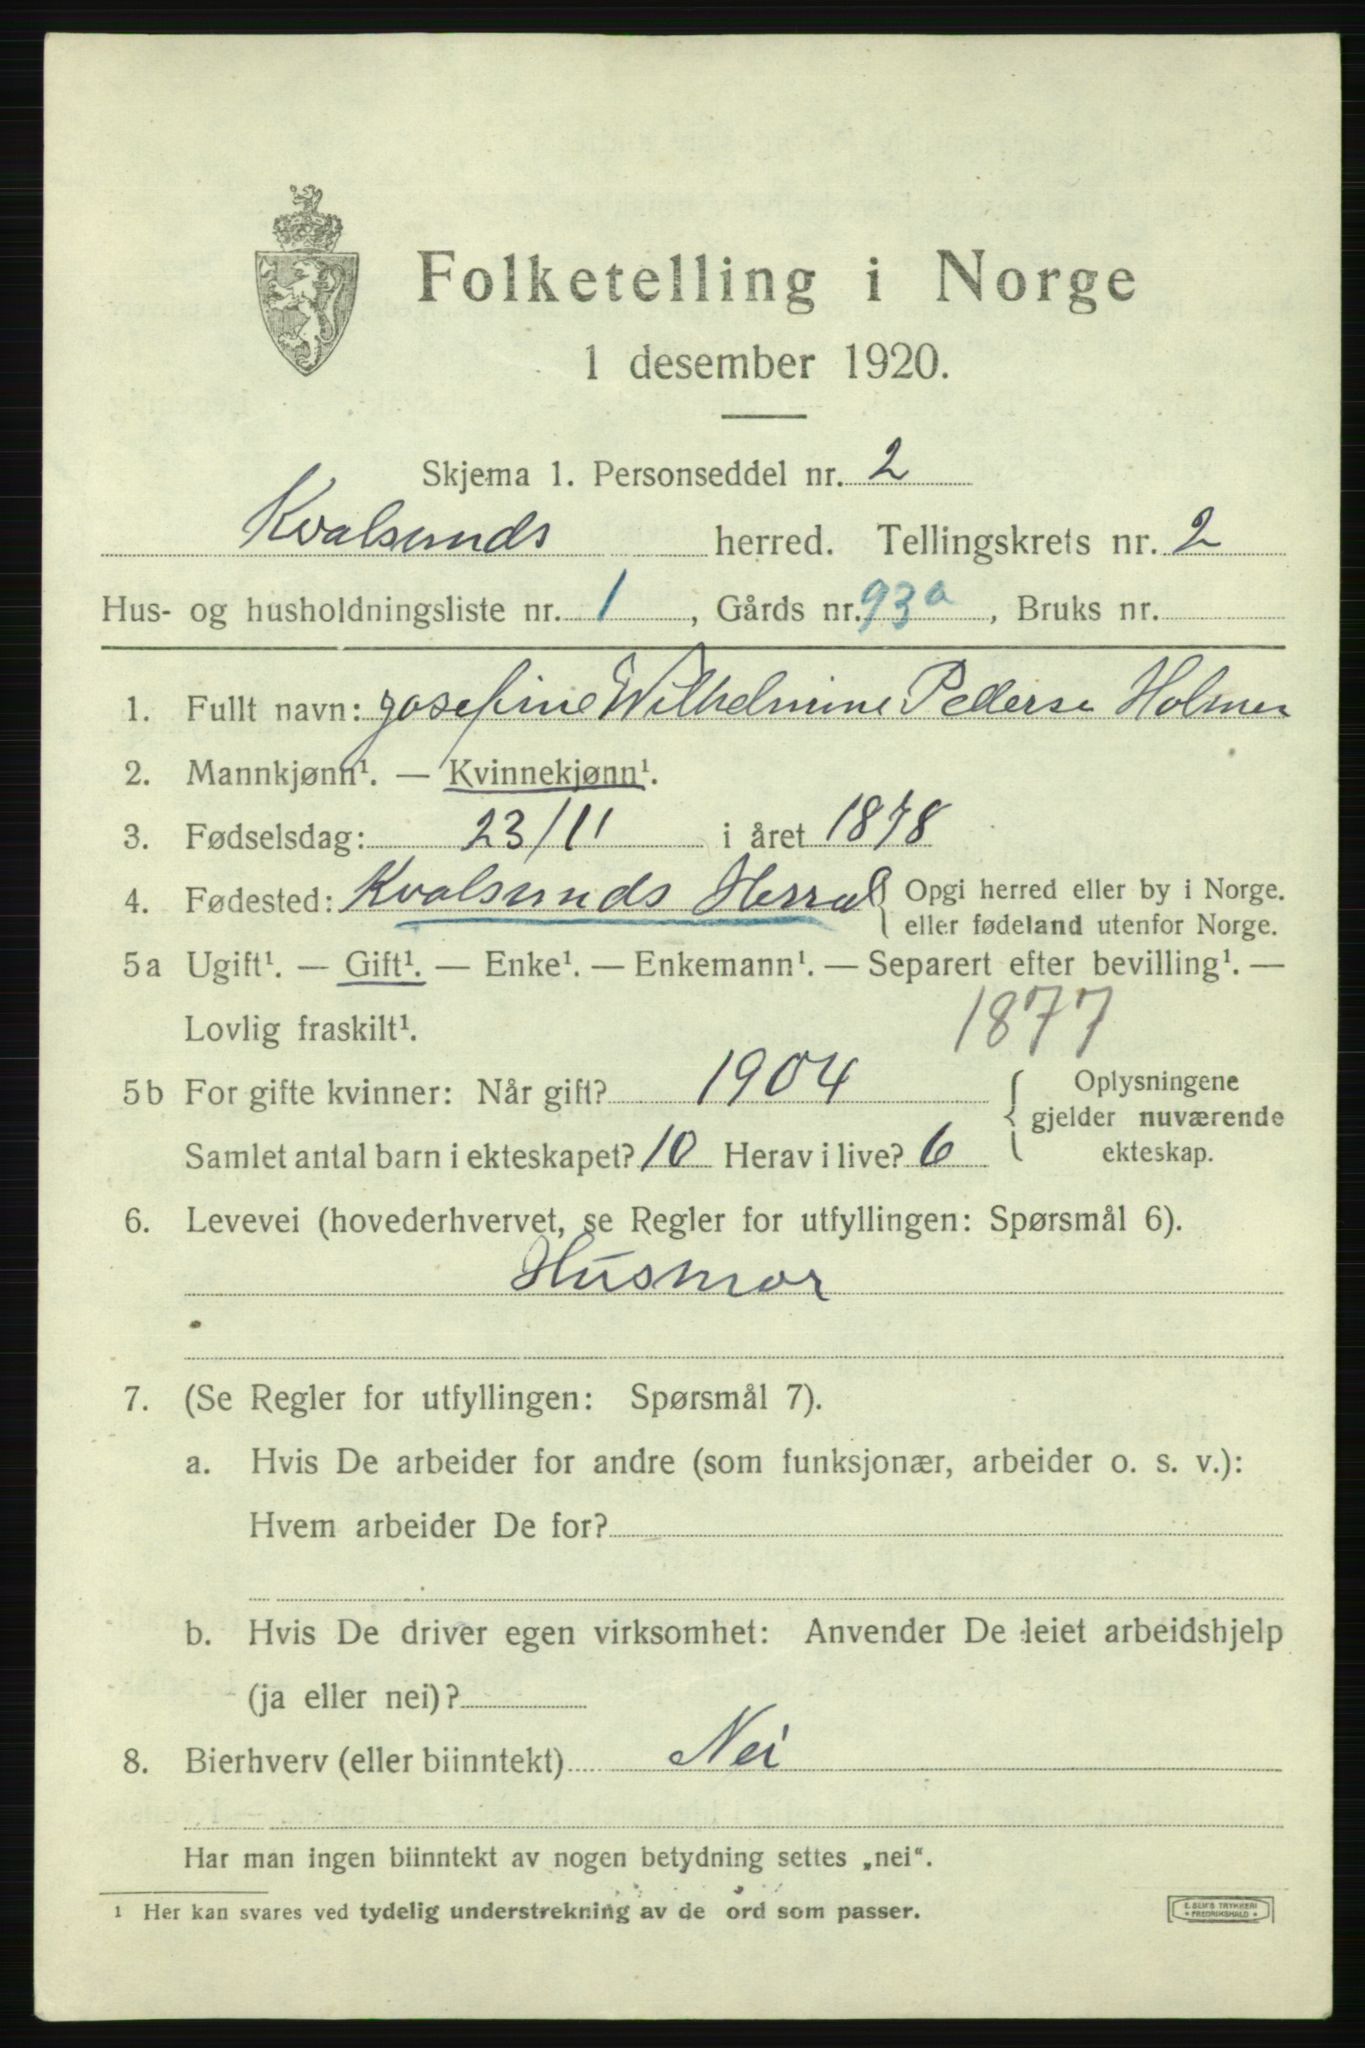 Folketelling i Norge
1 desember 1920.
Skjema 1. Personseddel nr. 2
Kvalsunds herred. Tellingskrets nr. 2
Hus- og husholdningsliste nr. 1, Gårds nr. 93a, Bruks nr.
1. Fullt navn: Josefine Wilhelmine Pederse Holmen
2. Mannkjønn¹. — Kvinnekjønn¹.
3. Fødselsdag: 23/11 i året 1878
4. Fødested: Kvalsunds Herred { Opgi herred eller by i Norge.
eller fødeland utenfor Norge.
5a Ugift¹. — Gift¹. — Enke¹. — Enkemann¹. — Separert efter bevilling¹. —
Lovlig fraskilt¹. 1877
5b For gifte kvinner: Når gift? 1904 { Oplysningene
gjelder nuværende
ekteskap.
Samlet antal barn i ekteskapet? 10 Herav i live? 6
6. Levevei (hovederhvervet, se Regler for utfyllingen: Spørsmål 6).
Husmor
7. (Se Regler for utfyllingen: Spørsmål 7).
a. Hvis De arbeider for andre (som funksjonær, arbeider o. s. v.):
Hvem arbeider De for?
b. Hvis De driver egen virksomhet: Anvender De leiet arbeidshjelp
(ja eller nei)?
8. Bierhverv (eller biinntekt) Nei
Har man ingen biinntekt av nogen betydning settes „nei“.
¹ Her kan svares ved tydelig understrekning av de ord som passer.
E. SEM'S TRYKKERI
FREDRIKSHALD